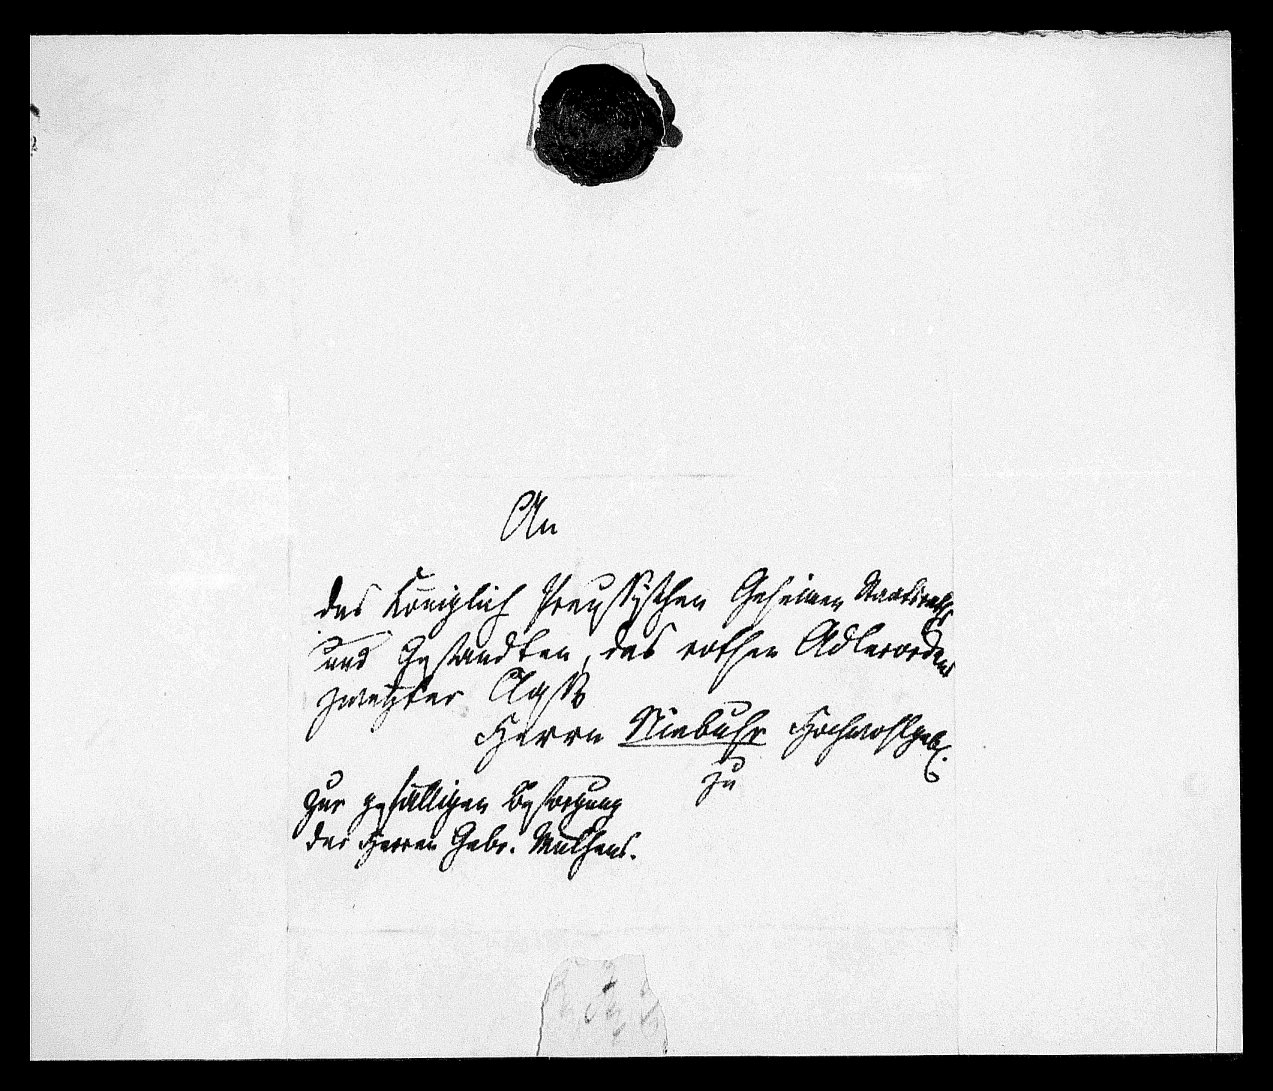 An
des Königlich Preußischen Geheimen Staatsraths
und Gesandten, des rothen Adlerordens
zweyter Classe
Herrn Niebuhr Hochwohlgeb.
zu
zur gefälligen Besorgung
der Herren Gebr. Mülhens.